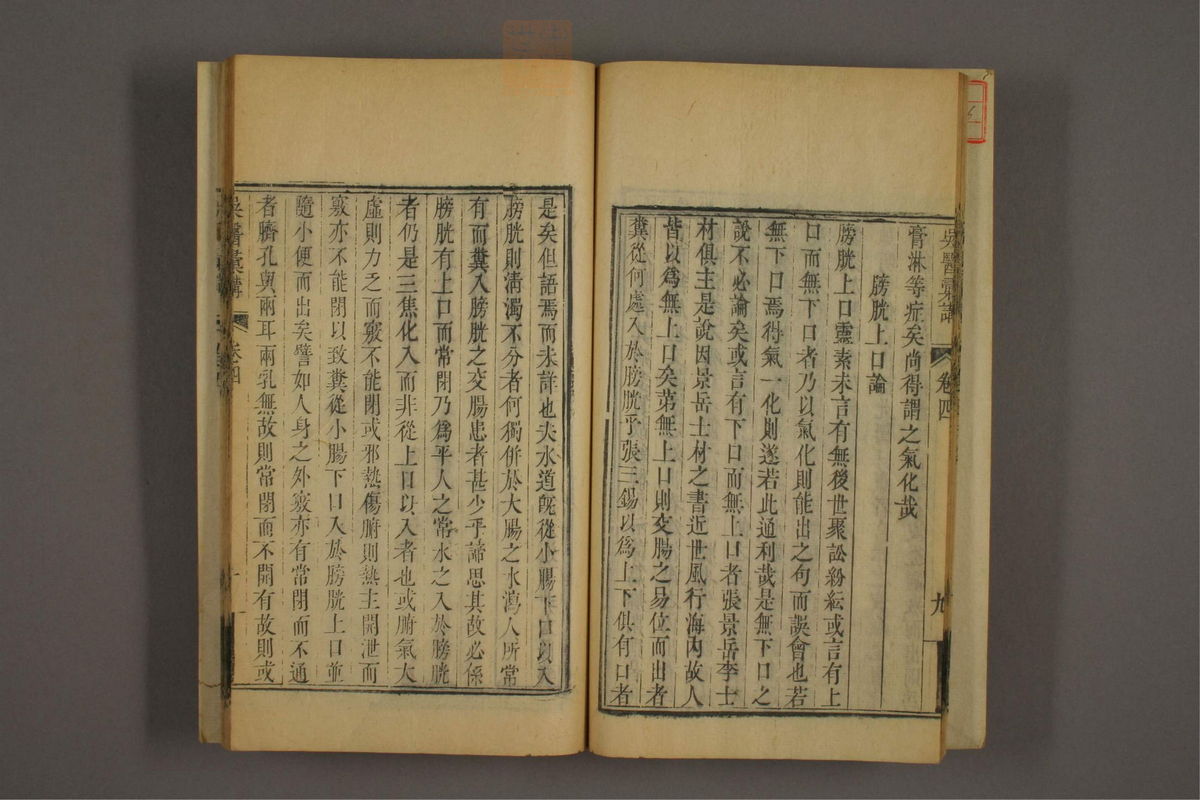 吳醫彙講 卷四 九
膏淋等症矣尚得謂之氣化哉
膀胱上口論
膀胱上口靈素未言有無後世聚訟紛紜或言有上
口而無下口者乃以氣化則能出之句而誤會也若
無下口焉得氣一化則遂若此通利哉是無下口之
說不必論矣或言有下口而無上口者張景岳李士
材俱主是說因景岳士材之書近世風行海內故人
皆以為無上口矣第無上口則交腸之易位而出者
糞從何處入於膀胱乎張三錫以為上下俱有口者
是矣但語焉而未詳也夫水道旣從小腸下口以入
膀胱則淸濁不分者何獨併於大腸之水瀉人所常
有而糞入膀胱之交腸患者甚少乎諦思其故必係
膀胱有上口而常閉乃為平人之常水之入於膀胱
者仍是三焦化入而非從上口以入者也或腑氣大
虛則力乏而竅不能閉或邪熱傷腑則熱主開泄而
竅亦不能閉以致糞從小腸下口入於膀胱上口並
隨小便而出矣譬如人身之外竅亦有常閉而不通
者臍孔與兩耳兩乳無故則常閉而不開有故則或
吳醫彙講 卷四